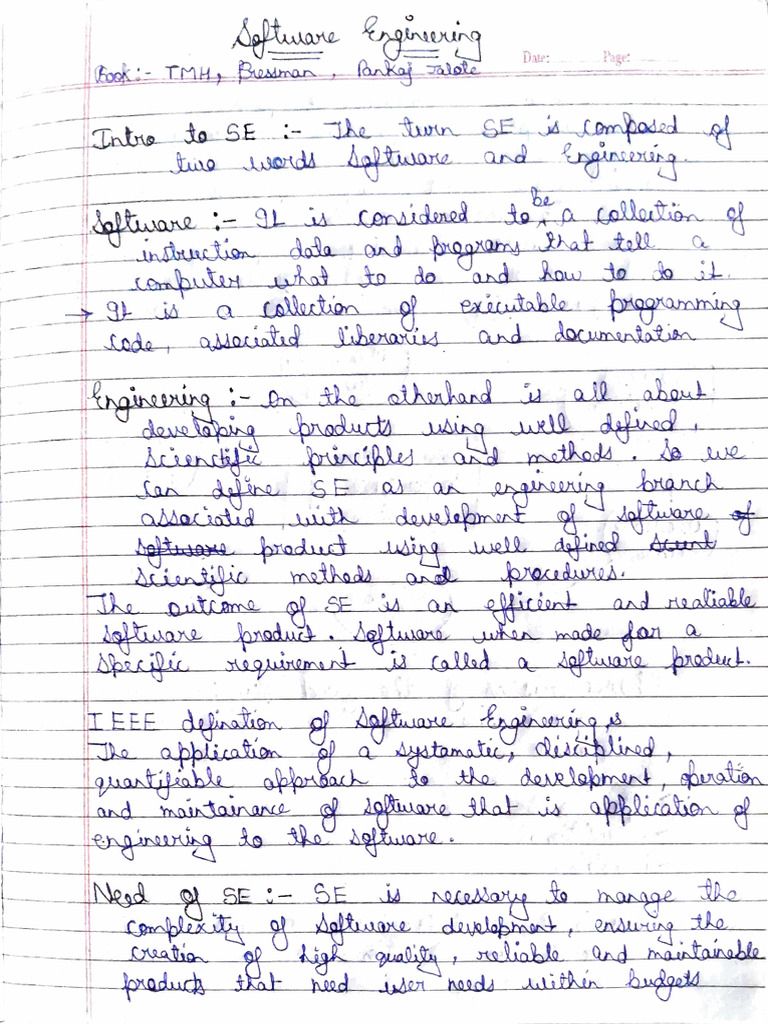 Software Engineering
Date: Page:
Book:- TMH, Pressman, Pankaj Jalote
Intro to SE :- The turn SE is composed of
two words Software and Engineering.
Software :- It is considered to be a collection of
instruction data and programs that tell a
computer what to do and how to do it.
→ It is a collection of executable programming
code, associated liberaries and documentation
Engineering :- On the otherhand is all about
developing products using well defined,
scienctific principles and methods. So we
can define SE as an engineering branch
associated with development of software of
software product using well defined scient
scientific methods and procedures.
The outcome of SE is an efficient and realiable
software product. Software when made for a
specific requirement is called a software product.
IEEE defination of Software Engineering is
The application of a systematic, disciplined,
quantifiable approach to the development, operation
and maintainance of software that is application of
engineering to the software.
Need of SE :- SE is necessary to manage the
complexity of software development, ensuring the
creation of high quality, reliable and maintainable
products that need user needs within budgets